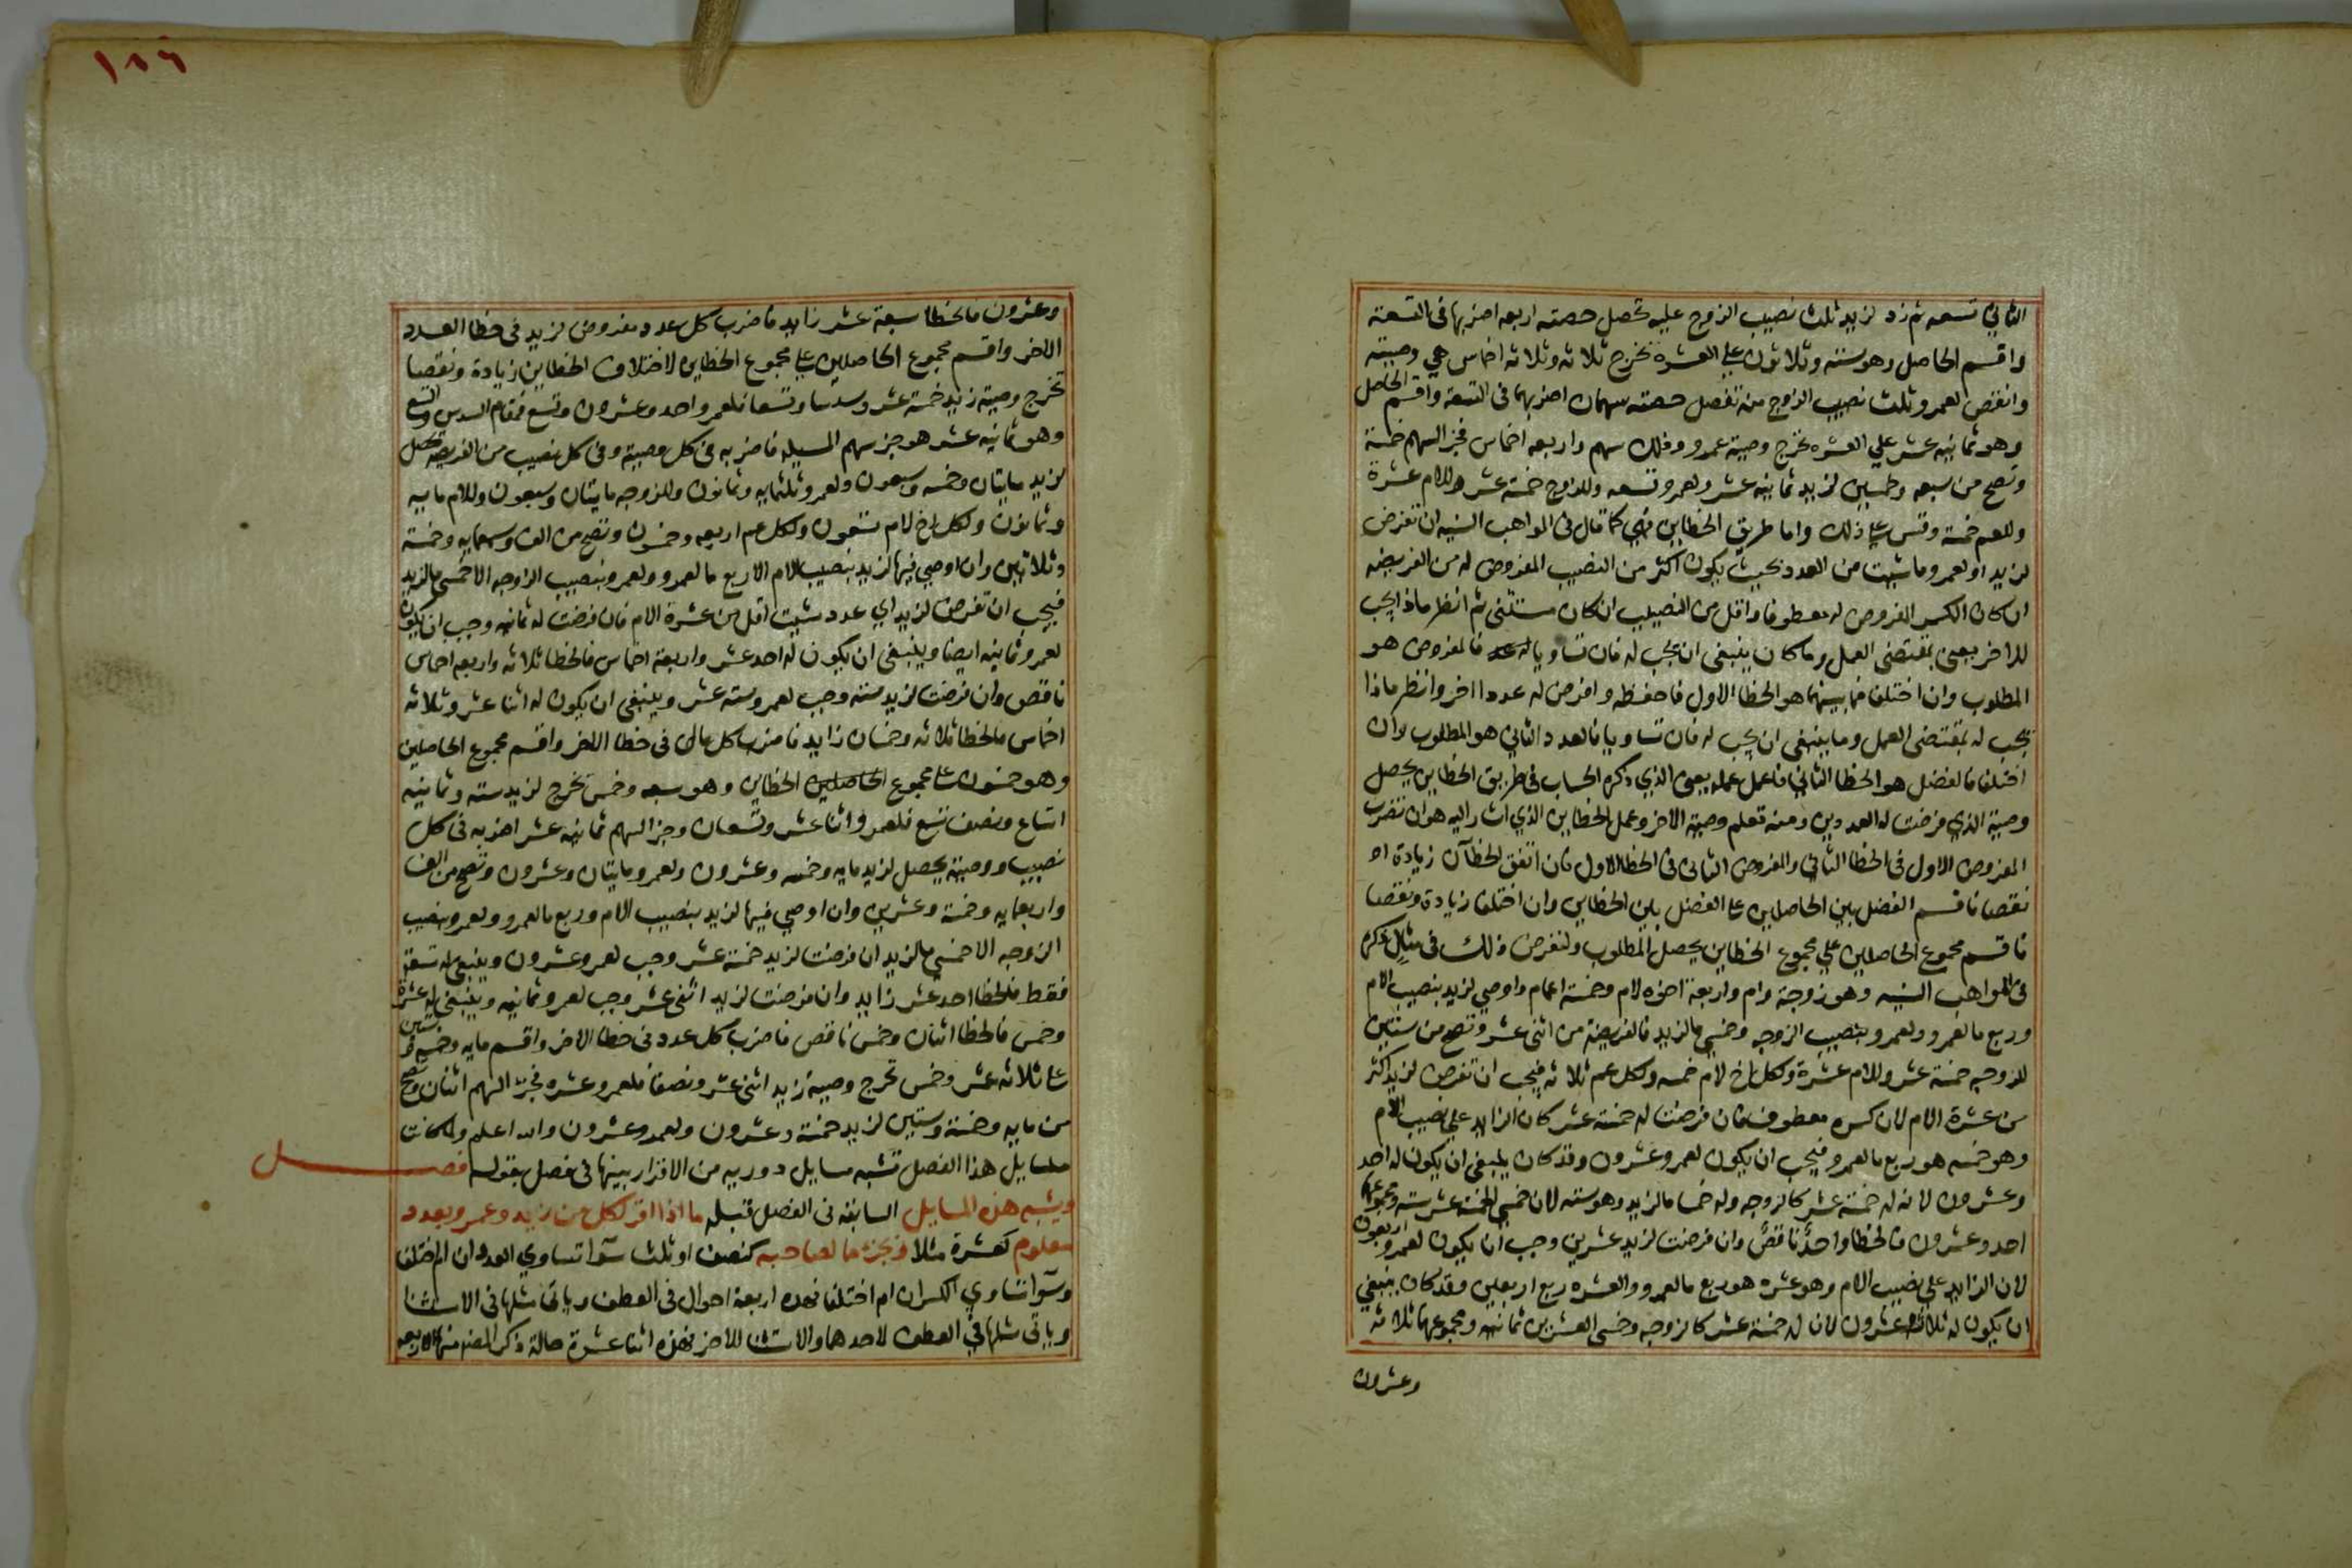 الثاني تسعه ثم زد لزيد ثلث نصيب الزوج عليه تحصل حصته اربعه اضربها في التسعة
واقسم الحاصل وهو ستة وثلاثون علي العشرة تخرج ثلاثه وثلاثه اخماس هي وصيته
وانقص لعمرو ثلث نصيب الزوج منه تفضل حصته سهمان اضربهما في التسعة واقسم الحاصل
وهو ثمانيه عشر علي العشره تخرج وصية عمرو وذلك سهم واربعه اخماس فجز السهم خمسة
وتصح من سبعه وخمسين لزيد ثمانيه عشر ولعمرو تسعه وللزوج خمسة عشر وللام عشرة
وللعم خمسة وقس علي ذلك واما طريق الخطاين فهي كما قال في المواهب السنيه ان تفرض
لزيد او لعمرو ما شيت من العدد بحيث يكون اكثر من النصيب المفروض له من الفريضه
ان كان الكسر المفروض له معطوفا واقل من النصيب ان كان مستثني ثم انظر ماذا يجب
للاخر يعني بمقتضي العمل وما كان ينبغي ان يجب له فان تساويا فالمفروض هو
المطلوب وان اختلفا فما بينهما هو الخطا الاول فاحفظه وافرض له عددا اخر وانظر ماذا
يجب له بمقتضي العمل وما ينبغي ان يجب له فان تساويا فالعدد الثاني هو المطلوب وان
اختلفا فالفضل هو الخطا الثاني فاعمل عمله يعني الذي ذكره الحساب في طريق الخطاين يحصل
وصية الذي فرضت له العددين ومنه تعلم وصية الاخر وعمل الخطاين الذي اشار اليه هو ان تضرب
المفروض الاول في الخطا الثاني والمفروض الثاني في الخطا الاول فان اتفق الخطآن زيادة او
نقصا فاقسم الفضل بين الحاصلين علي الفضل بين الخطاين وان اختلفا زيادة ونقصا
فاقسم مجموع الحاصلين علي مجموع الخطاين يحصل المطلوب ولنفرض ذلك في مثال ذكره
في المواهب السنيه وهو زوجة وام واربعة اخوه لام وخمسة اعمام واوصي لزيد بنصيب الام
وربع ما لعمرو ولعمرو بنصيب الزوجه وخمسي ما لزيد فالفريضة من اثني عشر وتصح من ستين
للزوجه خمسة عشر وللام عشرة ولكل اخ لام خمسه ولكل عم ثلاثه فيجب ان تفرض لزيد اكثر
من عشرة الام لان كسره معطوف فان فرضت له خمسة عشر كان الزايد علي نصيب الام
وهو خمسه هو ربع ما لعمرو فيجب ان يكون لعمرو عشرون وقد كان ينبغي ان يكون له احد
وعشرون لانه له خمسة عشر كالزوجه وله خمسا ما لزيد وهو سته لان خمسي الخمسة عشر سته ومجموعهما
احد وعشرون فالخطا واحد ناقص وان فرضت لزيد عشرين وجب ان يكون لعمرو اربعون
لان الزايد علي نصيب الام وهو عشره هو ربع ما لعمرو والعشره ربع اربعين وقد كان ينبغي
ان يكون له ثلاثه وعشرون لان له خمسة عشر كالزوجه وخمسي العشرين ثمانيه ومجموعهما ثلاثه
وعشرون
١٨٦
وعشرون فالخطا سبعة عشر زايد فاضرب كل عدد مفروض لزيد في خطا العدد
الاخر واقسم مجموع الحاصلين علي مجموع الخطاين لاختلاف الخطاين زيادة ونقصا
تخرج وصية زيد خمسة عشر وسدسا وتسعا فلعمرو احد وعشرون وتسع فمقام السدس والتسع
وهو ثمانيه عشر هو جز سهم المسيله فاضربه في كل وصية وفي كل نصيب من الفريضه تحصل
لزيد مايتان وخمسه وسبعون ولعمرو ثلثمايه وثمانون وللزوجه مايتان وسبعون وللام مايه
وثمانون ولكل اخ لام تسعون ولكل عم اربعه وخمسون وتصح من الف وسبعمايه وخمسة
وثلاثين وان اوصي فيها لزيد بنصيب الام الا ربع ما لعمرو ولعمرو بنصيب الزوجه الا خمسي ما لزيد
فيجب ان تفرض لزيد اي عدد شيت اقل من عشرة الام فان فرضت له ثمانيه وجب ان يكون
لعمرو ثمانيه ايضا وينبغي ان يكون له احد عشر واربعة اخماس فالخطا ثلاثه واربعه اخماس
ناقص وان فرضت لزيد سته وجب لعمرو سته عشر وينبغي ان يكون له اثنا عشر وثلاثه
اخماس فالخطا ثلاثه وخمسان زايد فاضرب كل مال في خطا الاخر واقسم مجموع الحاصلين
وهو خمسون علي مجموع الحاصلين الخطاين وهو سبعه وخمس تخرج لزيد سته وثمانيه
اتساع ونصف تسع فلعمرو اثنا عشر وتسعان وجز السهم ثمانيه عشر اضربه في كل
نصيب ووصية يحصل لزيد مايه وخمسه وعشرون ولعمرو مايتان وعشرون وتصح من الف
واربعمايه وخمسة وعشرين وان اوصي فيها لزيد بنصيب الام وربع ما لعمرو ولعمرو بنصيب
الزوجه الا خمسي ما لزيد ان فرضت لزيد خمسة عشر وجب لعمرو عشرون وينبغي له تسعة
فقط فالخطا احد عشر زايد وان فرضت لزيد اثني عشر وجب لعمرو ثمانيه وينبغي له عشرة
وخمس فالخطا اثنان وخمس ناقص فاضرب كل عدد في خطا الاخر واقسم مايه وخمسه وستين
علي ثلاثه عشر وخمس تخرج وصية زيد اثني عشر ونصفا فلعمرو عشره فجز السهم اثنان وتصح
من مايه وخمسة وستين لزيد خمسة وعشرون ولعمرو عشرون والله اعلم ولما كانت
مسايل هذا الفصل تشبه مسايل دوريه من الاقرار بينها في فصل بقوله فصــل
ويشبه هذه المسايل السابقه في الفصل قبله ما اذا اقر لكل من زيد وعمرو بعدد
معلوم كعشرة مثلا وبجزء ما لصاحبه كنصف او ثلث سوآ تساوي العددان ام اختلفا
وسوآ تساوي الكسران ام اختلفا فهذه اربعة احوال في العطف وياتي مثلها في الاستثنا
وياتي مثلها في العطف لاحدهما والاستثنا للاخر فهذه اثنا عشرة حالة ذكر المصنف منها الاربعه